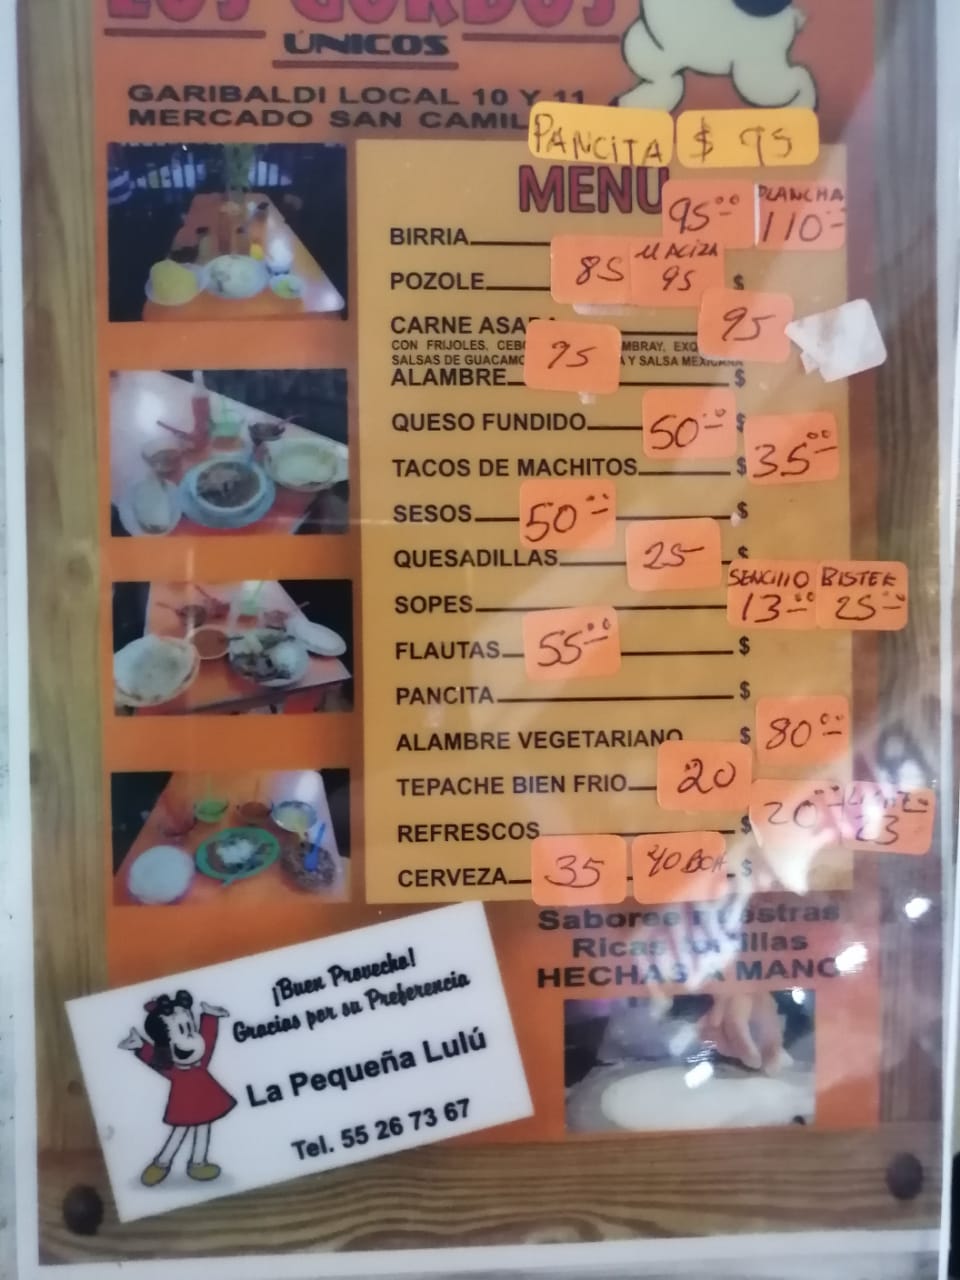 LOS GORDOS
ÚNICOS
GARIBALDI LOCAL 10 Y 11
MERCADO SAN CAMIL
PANCITA $ 95
MENU
BIRRIA 95.00 PLANCHA 110
POZOLE 85 MACIZA 95 $
CARNE ASADA 95
CON FRIJOLES, CEBO MBRAY,
SALSAS DE GUACAMO Y SALSA MEXICANA
ALAMBRE 95 $
QUESO FUNDIDO 50.00 $
TACOS DE MACHITOS $ 35.00
SESOS 50.00 $
QUESADILLAS 25 $
SOPES SENCILLO 13.00 BISTEK 25.00
FLAUTAS 55.00 $
PANCITA $
ALAMBRE VEGETARIANO $ 80.00
TEPACHE BIEN FRIO 20
REFRESCOS $ 20 23
CERVEZA 35 40 BOH. $
Saboree nuestras
Ricas tortillas
HECHAS A MANO
¡Buen Provecho!
Gracias por su Preferencia
La Pequeña Lulú
Tel. 55 26 73 67